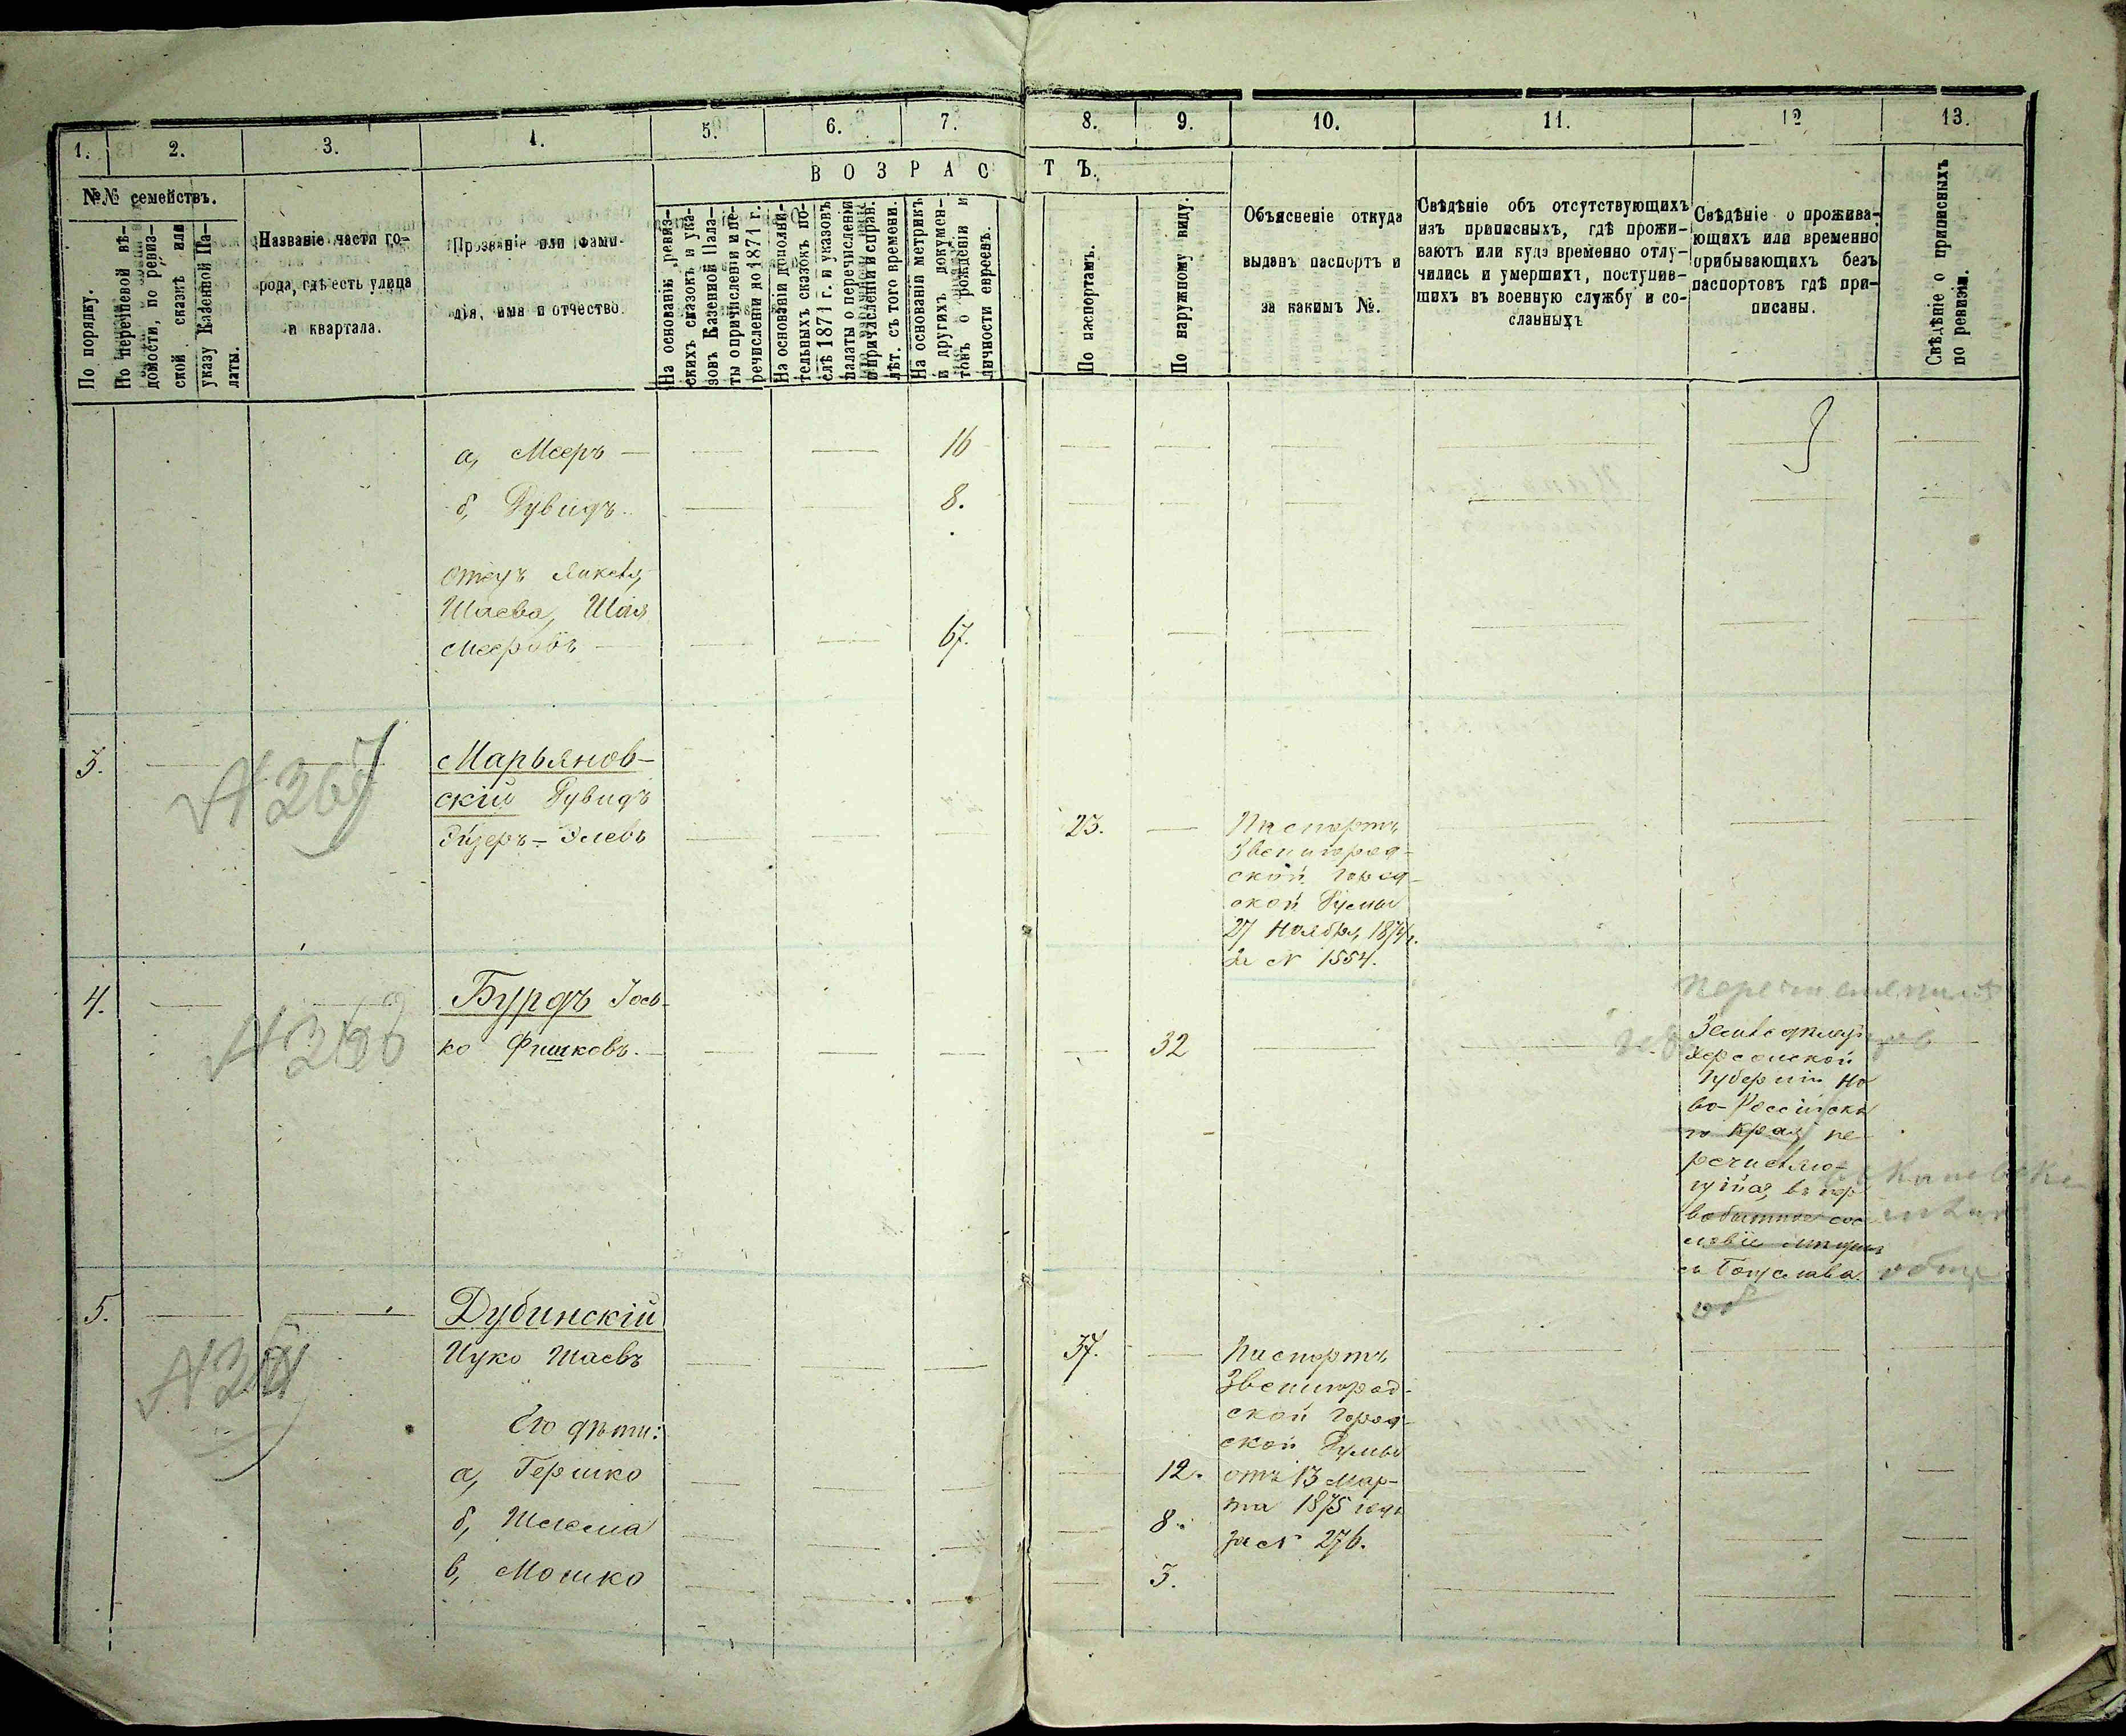 1. 2. 3. 4. 5. 6. 7. 8. 9. 10. 11. 12 13.
В О З Р А С Т Ъ.
№№ семействъ.
По порядку.
По перечневой вѣ-
домости, по ревиз-
ской сказкѣ или
указу Казенной Па-
латы.
Названіе части го-
рода, гдѣ есть улица
и квартала.
Прозваніе или фами-
лія, имя и отчество.
На основаніи ревиз-
скихъ сказокъ и ука-
зовъ Казенной Пала-
ты о причисленіи и пе-
речисленіи до 1871 г.
На основаніи дополни-
тельныхъ сказокъ по-
слѣ 1871 г. и указовъ
палаты о перечисленіи
и причисленіи и справ.
лѣт. съ того времени.
На основаніи метрикъ
и другихъ докумен-
товъ о рожденіи и
личности евреевъ.
По паспортамъ.
По наружному виду.
Объясненіе откуда
выданъ паспортъ и
за какимъ №.
Свѣдѣніе объ отсутствующихъ
изъ приписныхъ, гдѣ прожи-
ваютъ или куда временно отлу-
чились и умершихъ, поступив-
шихъ въ военную службу и со-
сланныхъ
Свѣдѣніе о прожива-
ющихъ или временно
прибывающихъ безъ
паспортовъ гдѣ при-
писаны.
Свѣдѣніе о приписныхъ
по ревизіи.
а, Мееръ — 16
б, Дувидъ 8.
Отецъ
Шаева, Шая
Мееровъ — 67.
3.
N 267
Марьянов-
скій Дувидъ
Эйзеръ-Элевъ
23.
Паспортъ
Звенигород-
ской город-
ской Думы
27 Ноября, 1874 г.
за N 1554.
4.
N 268
Бурдъ Іось-
ко Фишковъ.
32
Херсонской
Губерніи Но
во-Россійска
го края, пе-
речисляю-
щійся, въ пер
вобытное сос
ловіе
5.
Дубинскій
Ицко Шаевъ
37.
Паспортъ
Звенигород-
ской город-
ской Думы
отъ 13 Мар-
та 1875 года
за N 276.
Его дѣти:
а, Гершко 12.
б, Шлема 8.
в, Мошко 3.